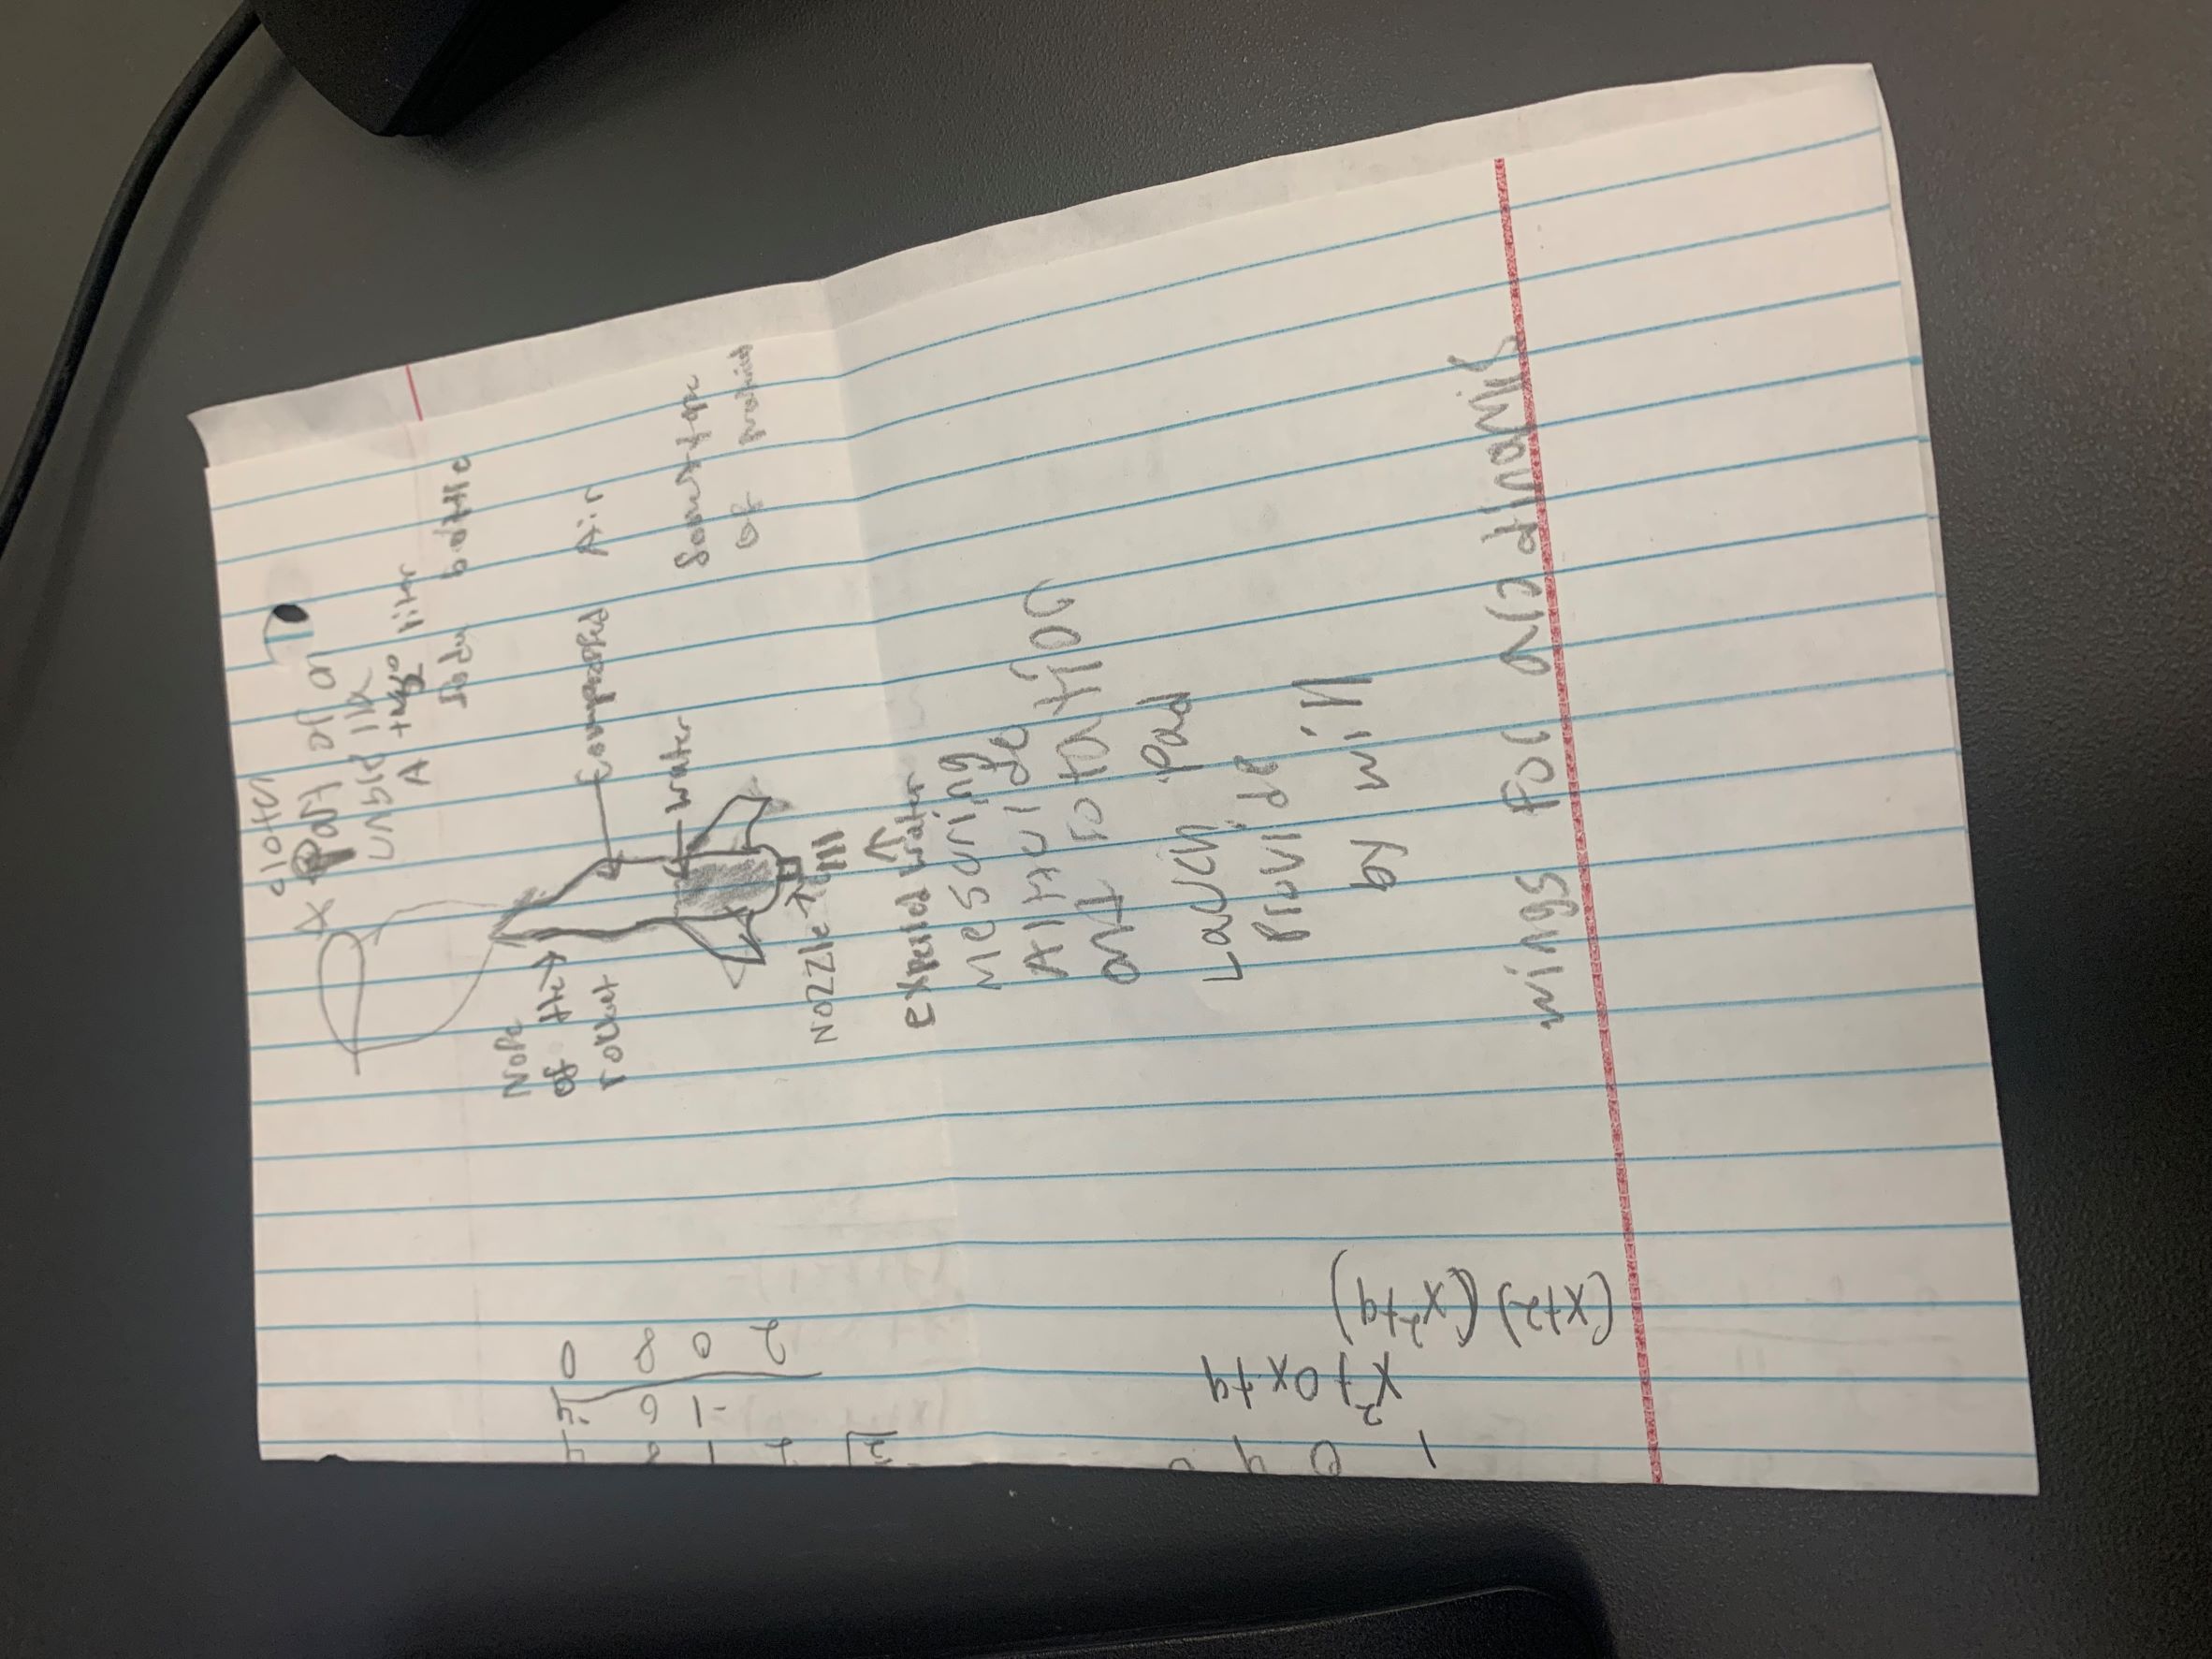 cloter
A Part of an
unbrella
A two liter
Soda bottle
Nose
of the
rocket
Compressed Air
water
Some type
of
Nozzle
expelled water
Mesuring
Altituide
and rotation
Lauch Pad
Provide
by will
wings For arodinamis
-4
0
-1 6
2 0 8 0
x²+0x+4
(x+2)(x²+4)